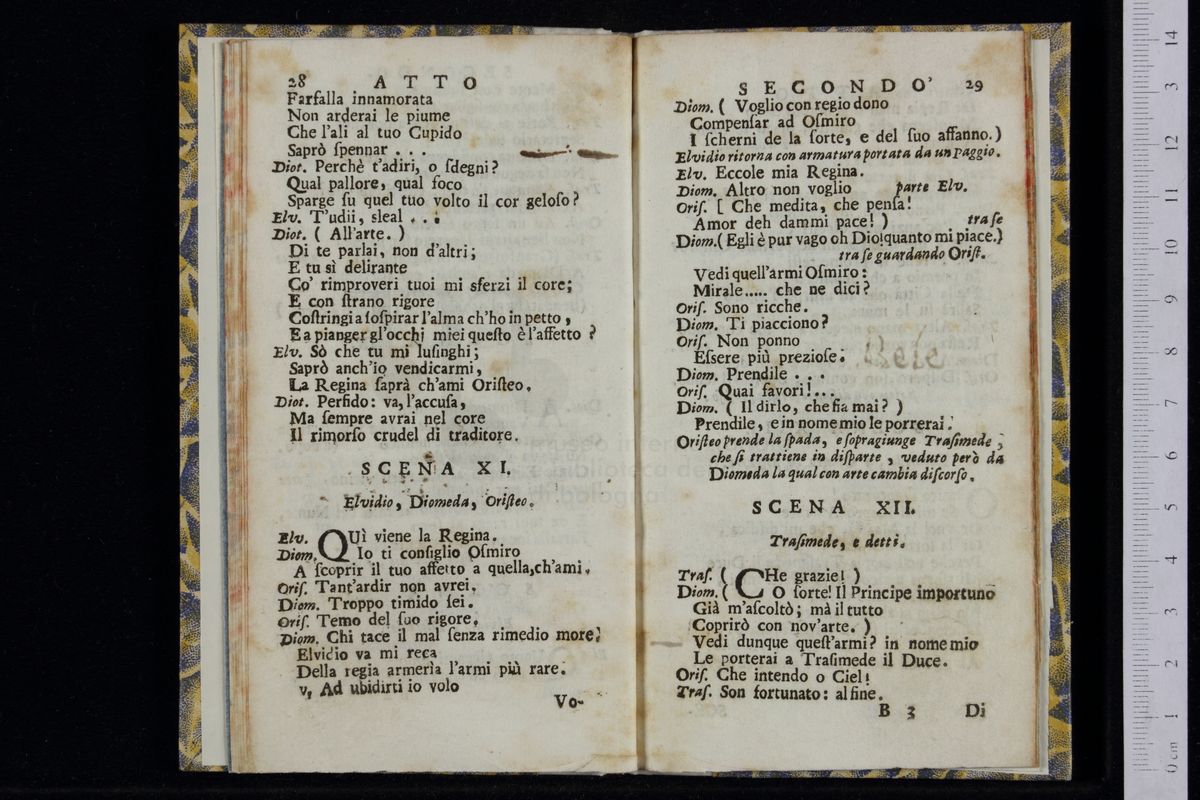 28 ATTO
Farfalla innamorata
Non arderai le piume
Che l'ali al tuo Cupido
Saprò ſpennar . . .
Diot. Perchè t'adiri, o ſdegni?
Qual pallore, qual foco
Sparge ſu quel tuo volto il cor geloſo?
Elv. T'udii, sleal . . .
Diot. ( All'arte. )
Di te parlai, non d'altri;
E tu sì delirante
Co' rimproveri tuoi mi sferzi il core;
E con ſtrano rigore
Coſtringi a ſoſpirar l'alma ch'ho in petto,
E a pianger gl'occhi miei queſto è l'affetto ?
Elv. Sò che tu mi luſinghi;
Saprò anch'io vendicarmi,
La Regina ſaprà ch'ami Oriſteo.
Diot. Perfido: va, l'accuſa,
Ma ſempre avrai nel core
Il rimorſo crudel di traditore.
SCENA XI.
Elvidio, Diomeda, Oriſteo.
Elv. QUì viene la Regina.
Diom. Io ti conſiglio Oſmiro
A ſcoprir il tuo affetto a quella, ch'ami.
Oriſ. Tant'ardir non avrei.
Diom. Troppo timido ſei.
Oriſ. Temo del ſuo rigore.
Diom. Chi tace il mal ſenza rimedio more.
Elvidio va mi reca
Della regia armerìa l'armi più rare.
v. Ad ubidirti io volo
Vo-
SECONDO' 29
Diom. ( Voglio con regio dono
Compenſar ad Oſmiro
I ſcherni de la ſorte, e del ſuo affanno.)
Elvidio ritorna con armatura portata da un paggio.
Elv. Eccole mia Regina.
Diom. Altro non voglio parte Elv.
Oriſ. [ Che medita, che penſa!
Amor deh dammi pace! ) tra ſe
Diom.( Egli è pur vago oh Dio! quanto mi piace.)
tra ſe guardando Oriſt.
Vedi quell'armi Oſmiro:
Mirale..... che ne dici?
Oriſ. Sono ricche.
Diom. Ti piacciono?
Oriſ. Non ponno
Eſſere più prezioſe.
Diom. Prendile . . .
Oriſ. Quai favori!...
Diom. ( Il dirlo, che fia mai? )
Prendile, e in nome mio le porrerai.
Oriſteo prende la ſpada, e ſopragiunge Traſimede,
che ſi trattiene in diſparte, veduto però da
Diomeda la qual con arte cambia diſcorſo.
SCENA XII.
Traſimede, e detti.
Traſ. ( CHe grazie! )
Diom. ( O ſorte! Il Principe importuno
Già m'aſcoltò; mà il tutto
Coprirò con nov'arte. )
Vedi dunque queſt'armi? in nome mio
Le porterai a Traſimede il Duce.
Oriſ. Che intendo o Ciel!
Traſ. Son fortunato: al fine.
B 3 Di